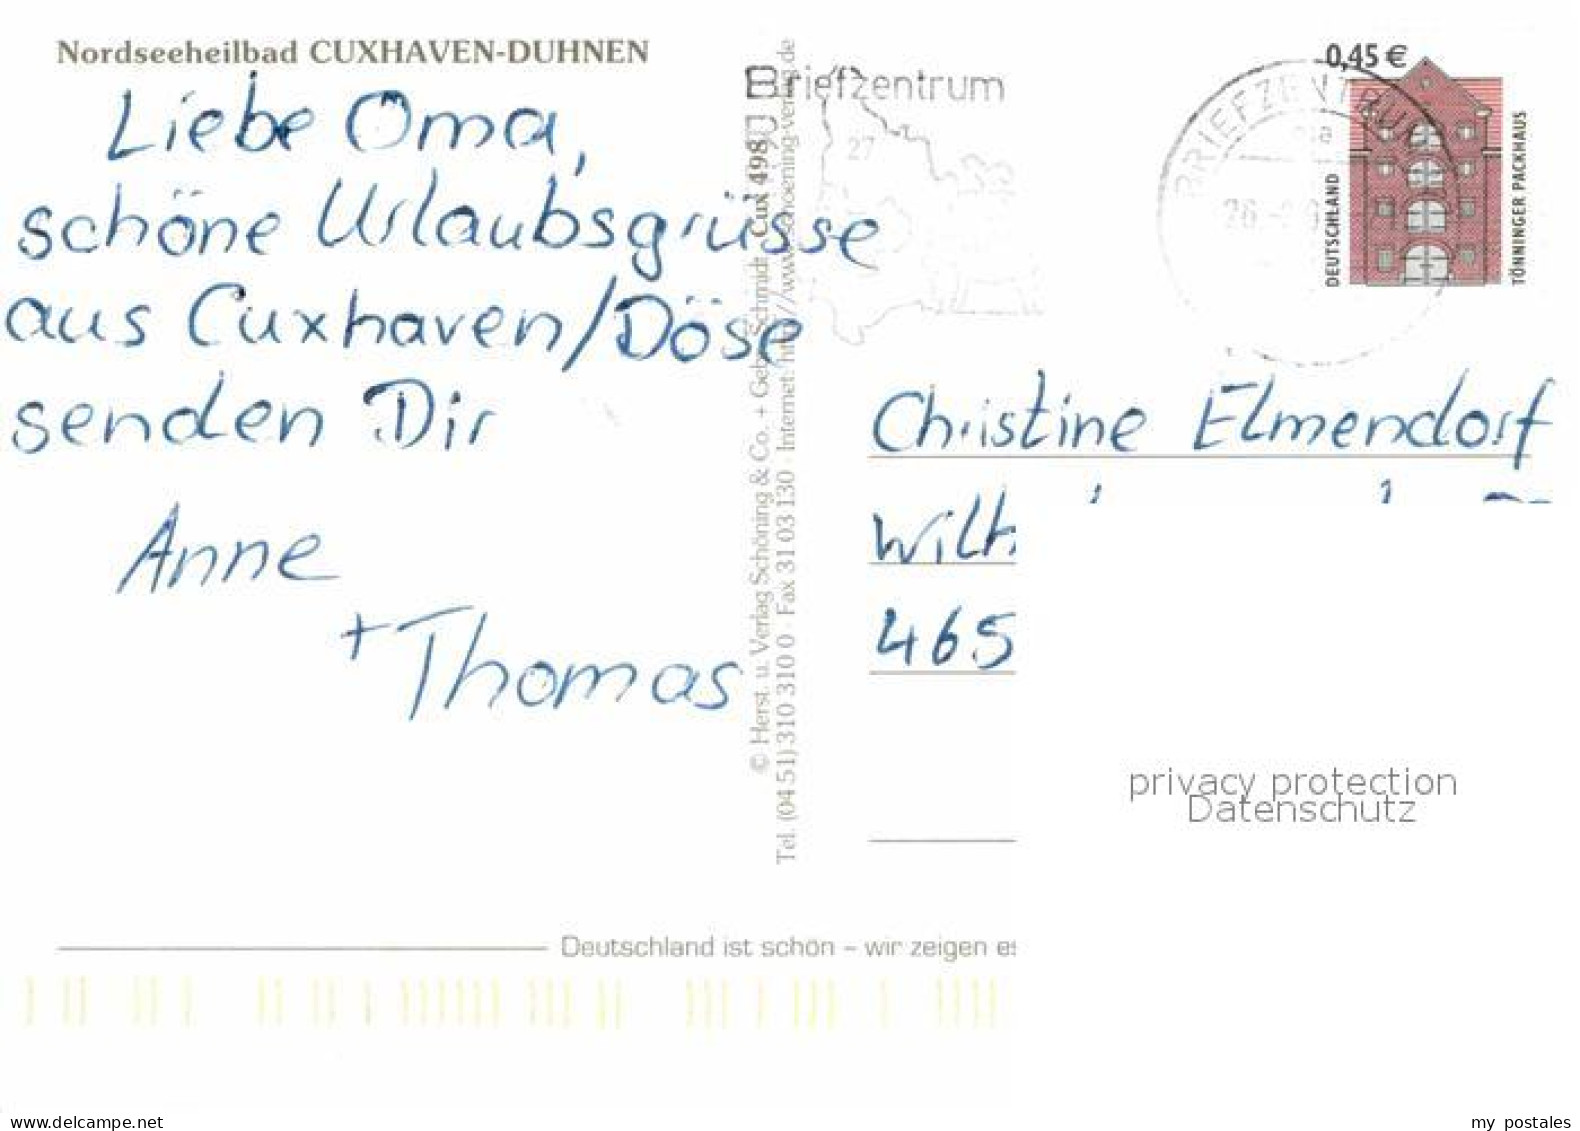 Nordseeheilbad CUXHAVEN-DUHNEN
Liebe Oma,
schöne Urlaubsgrüsse
aus Cuxhaven/Döse
senden Dir
Anne
+ Thomas
© Herst. u. Verlag Schöning & Co. + Gebr. Schmidt Cux 498
Tel. (04 51) 310 310 0 · Fax 31 03 130 · Internet: http://www.schoening-verlag.de
Briefzentrum
27
BRIEFZENTRUM
0,45 €
DEUTSCHLAND
TÖNNINGER PACKHAUS
Christine Elmendorf
Wilh
465
privacy protection
Datenschutz
Deutschland ist schön – wir zeigen es
www.delcampe.net
my_postales